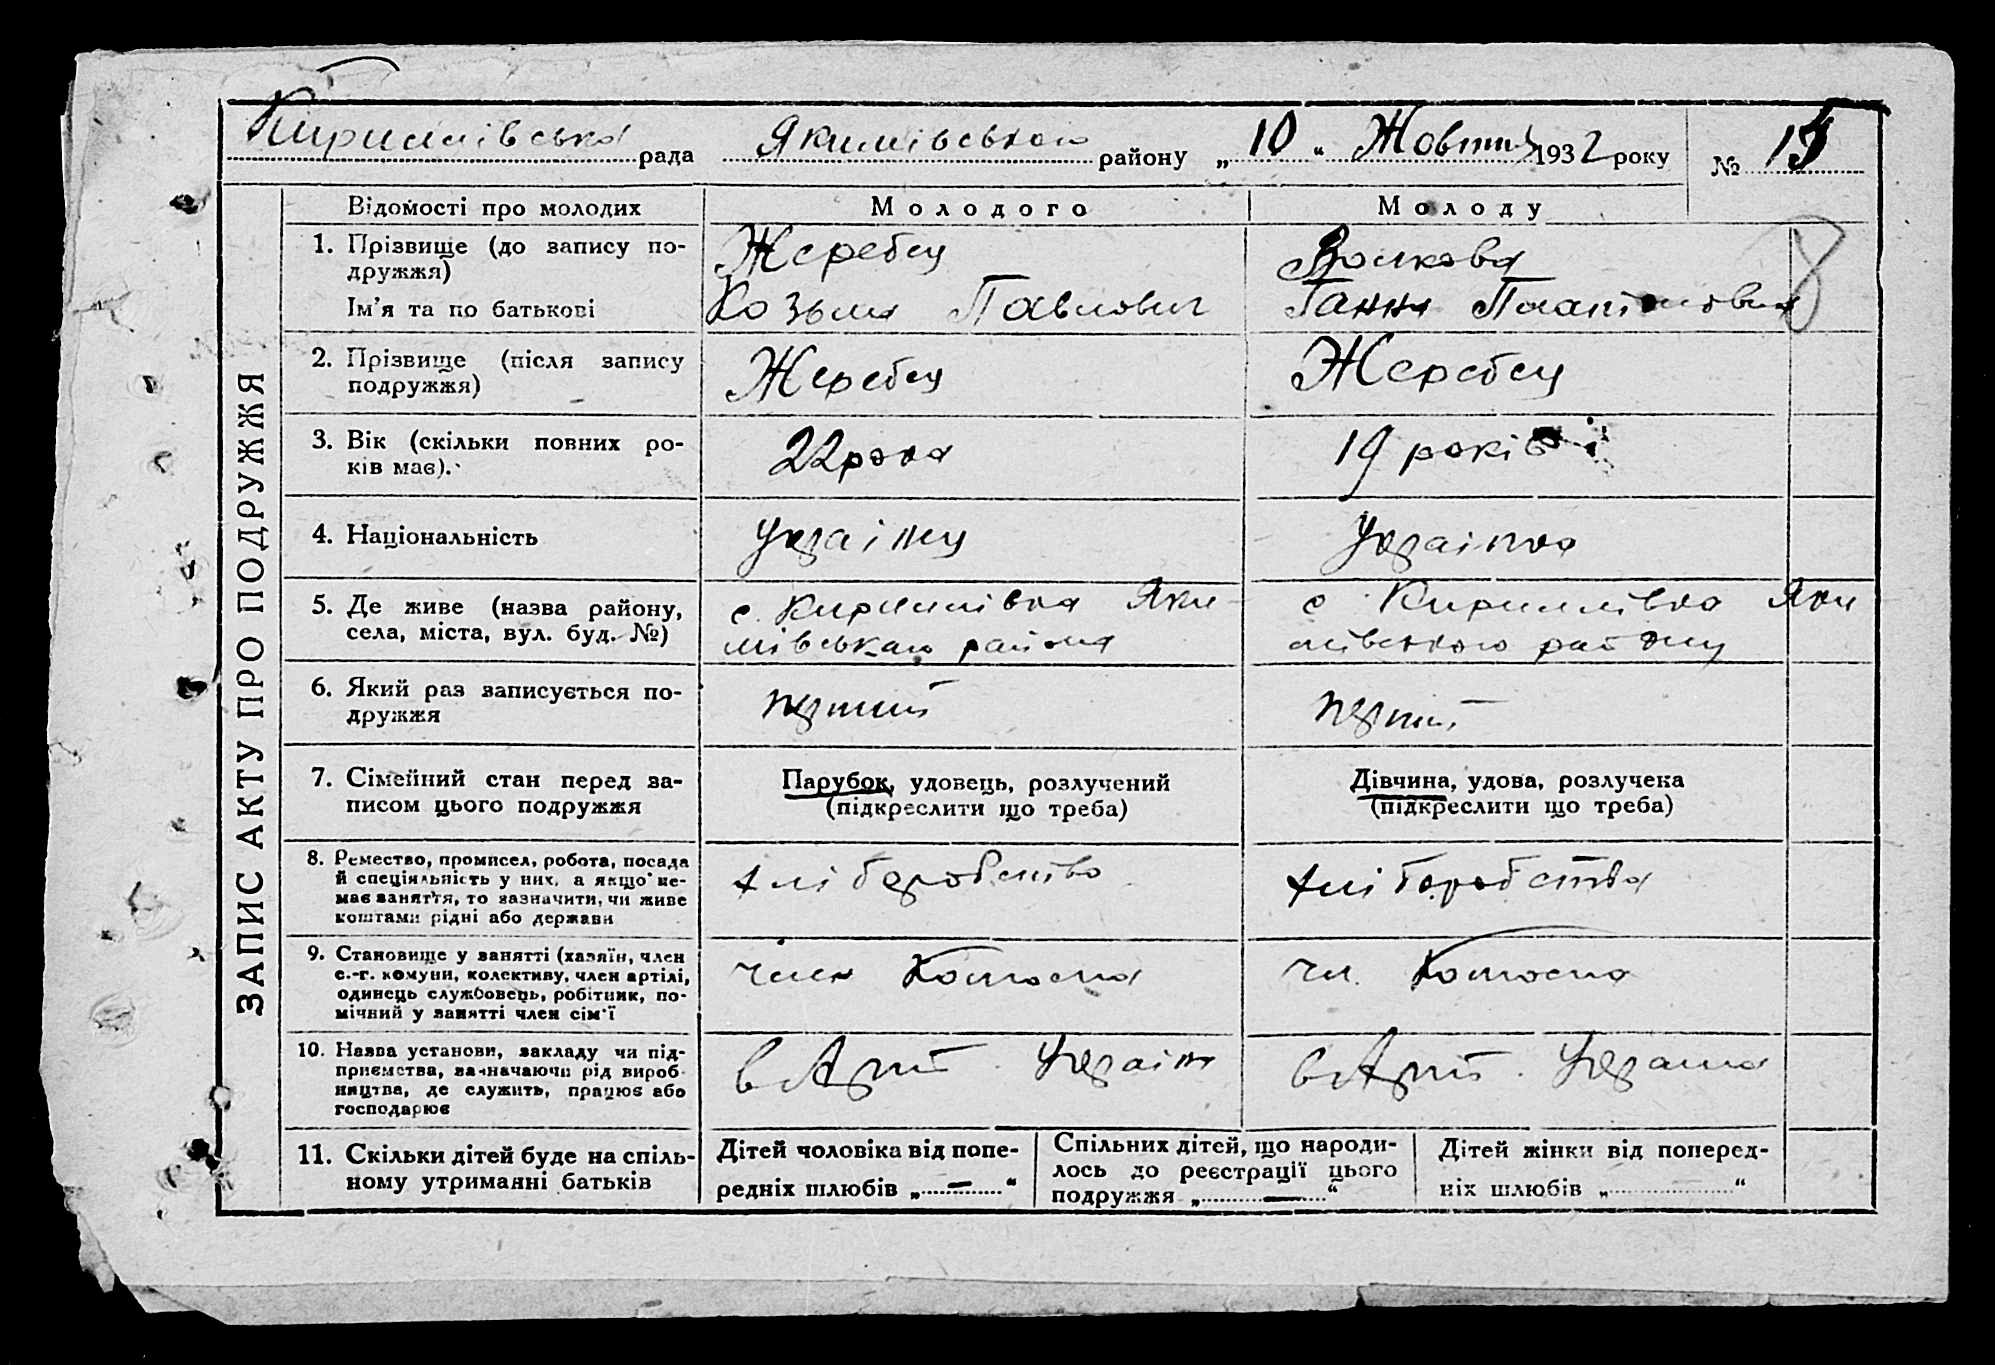 Кирилівська рада Якимівського району „ 10 “ Жовтня 1932 року № 15
ЗАПИС АКТУ ПРО ПОДРУЖЖЯ
Відомості про молодих Молодого Молоду
1. Прізвище (до запису по-
дружжя)
Жеребец Волкова
Ім'я та по батькові Козьма Павлович Ганна Платоновна
8
2. Прізвище (після запису
подружжя)
Жеребец Жеребец
3. Вік (скільки повних ро-
ків має).
22 рока 19 років
4. Національність українец українка
5. Де живе (назва району,
села, міста, вул. буд. №)
с. Кирилівка Яки-
мівського района
с. Кирилівка Яки
мівського району
6. Який раз записується по-
дружжя
перший перший
7. Сімейний стан перед за-
писом цього подружжя
Парубок, удовець, розлучений
(підкреслити що треба)
Дівчина, удова, розлучена
(підкреслити що треба)
8. Ремество, промисел, робота, посада
й спеціяльність у них, а якщо не-
має заняття, то зазначити, чи живе
коштами рідні або держави
хліборобство хліборобства
9. Становище у занятті (хазяїн, член
с.-г. комуни, колективу, член артілі,
одинець службовець, робітник, по-
мічний у занятті член сім'ї
член Колгоспа чл. Колгоспа
10. Назва установи, закладу чи під-
приємства, зазначаючи рід вироб-
ництва, де служить, працює або
господарює
в Арт. в Арт.
11. Скільки дітей буде на спіль-
ному утриманні батьків
Дітей чоловіка від попе-
редніх шлюбів „ — “
Спільних дітей, що народи-
лось до реєстрації цього
подружжя „ — “
Дітей жінки від поперед-
ніх шлюбів „ “